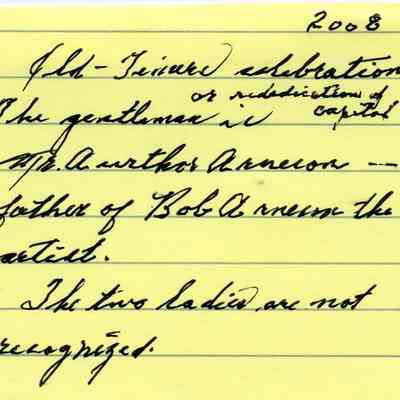 2008
Old-Timers celebration
or rededication of
capitol
The gentleman is
Mr. Aurthor Arneson --
father of Bob Arneson the
artist.
The two ladies are not
recognized.